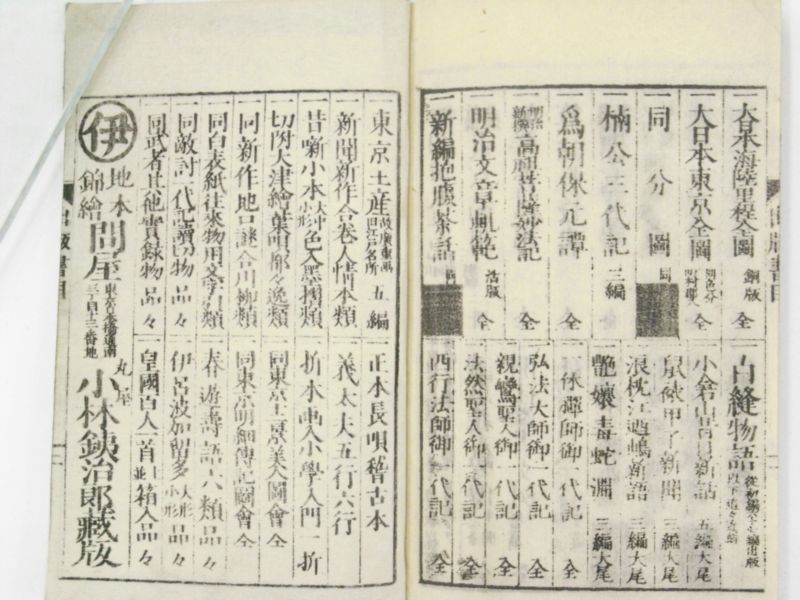 大日本海陸里程全圖 銅版 全
大日本東京全圖 全
同 分圖
楠公三代記 三編
為朝保元譚 全
全
明治文章軌範 活版 全
新編
白縫物語
小倉山青樹新話 五編大尾
新聞 三編大尾
浪枕江の嶋新語 三編大尾
艶孃毒蛇淵 三編大尾
一休禪師御一代記 全
弘法大師御一代記 全
親鸞聖人御一代記 全
法然聖人御一代記 全
西行法師御一代記 全
東京土産 五編
新聞新作合巻人情本類
昔噺小本 大中小形 色入墨摺類
切附大津繪葉唄都々逸類
同新作地口謎合川柳類
同白表紙往來物用文字引類
同敵討一代記讀切物 品々
同武者其他實録物 品々
正本長唄稽古本
義太夫五行六行
折本画入小學入門一折
同東京美人圖會 全
同東京明細傳記圖會 全
春遊壽語六類 品々
伊呂波加留多 大形小形 品々
皇國百人一首 箱入品々
伊
地本
錦繪
問屋
東京日本橋通南
三丁目十三番地
丸屋
小林鉄治郎藏版
出版書目